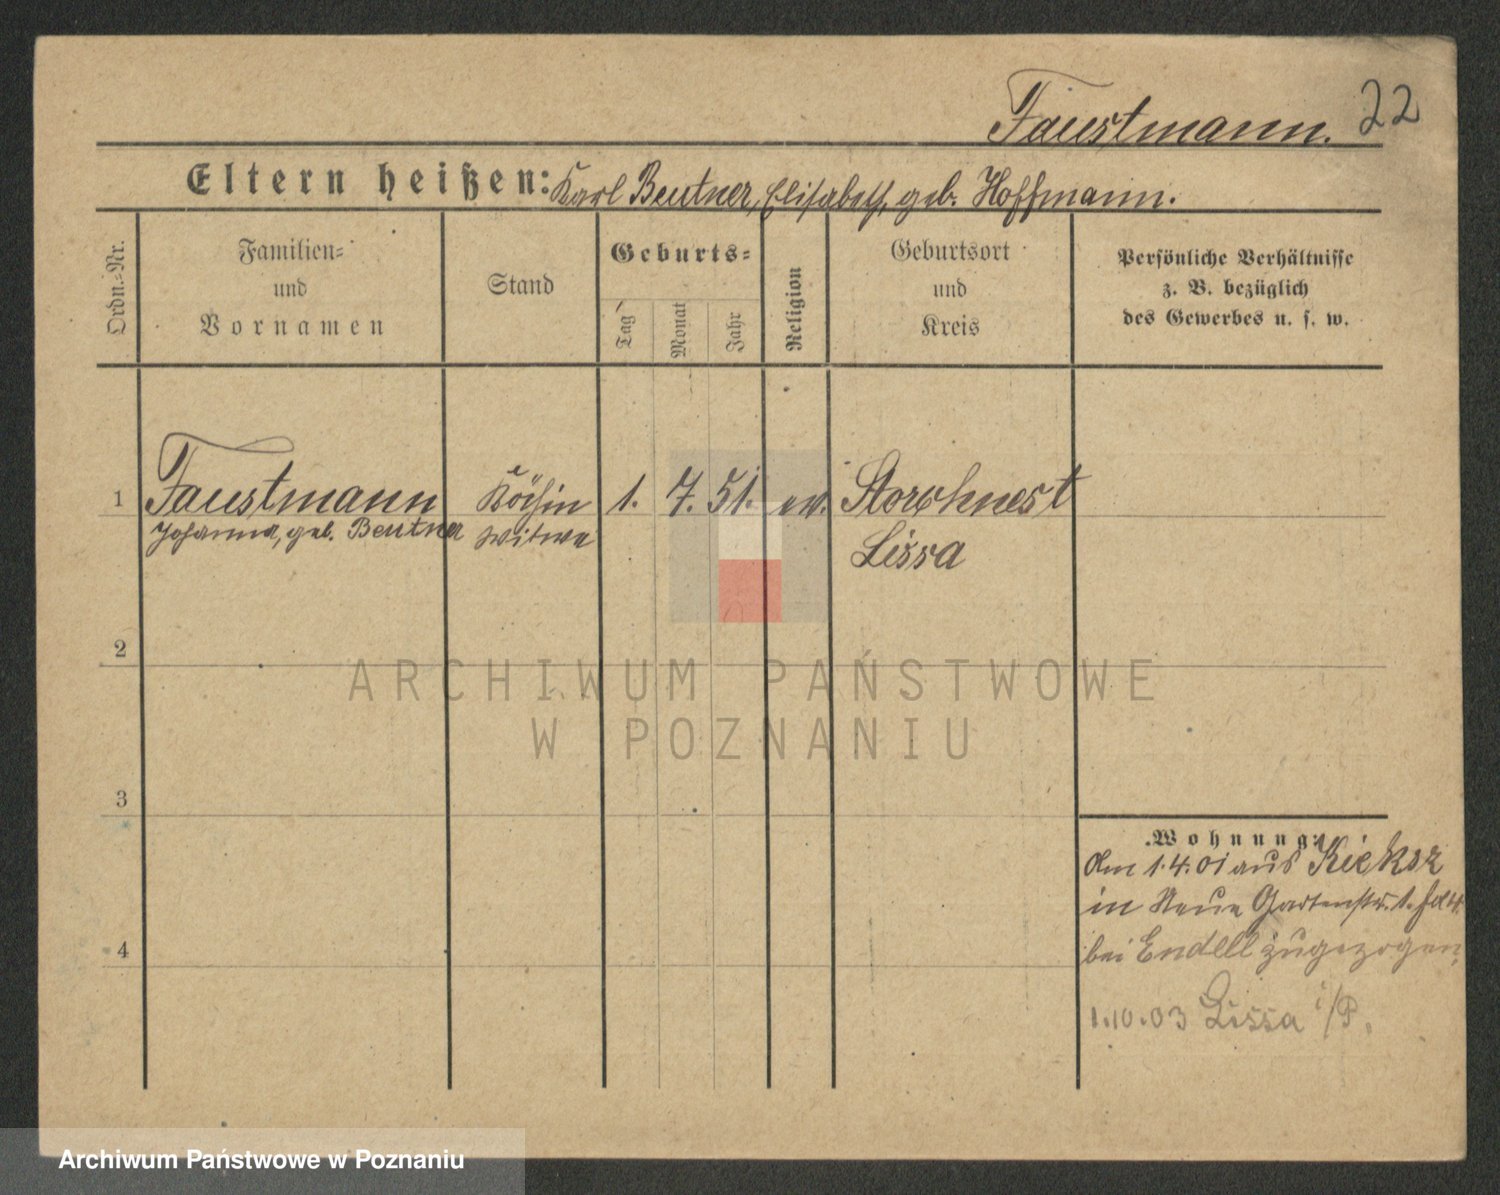 Faustmann. 22
Eltern heißen: Karl Beutner, Elisabeth, geb. Hoffmann.
Ordn.=Nr.
Familien=
und
Vornamen
Stand
Geburts=
Tag
Monat
Jahr
Religion
Geburtsort
und
Kreis
Persönliche Verhältnisse
z. B. bezüglich
des Gewerbes u. s. w.
1 Faustmann Köchin 1. 7. 51. ev. Storchnest
Johanna, geb. Beutner Witwe Lissa
2
ARCHIWUM PAŃSTWOWE
W POZNANIU
3
Wohnung:
Am 1.4.01 aus Kiekrz
in Neue Gartenstr. 1.
4
bei Endell zugezogen,
1.10.03 Lissa i/P.
Archiwum Państwowe w Poznaniu